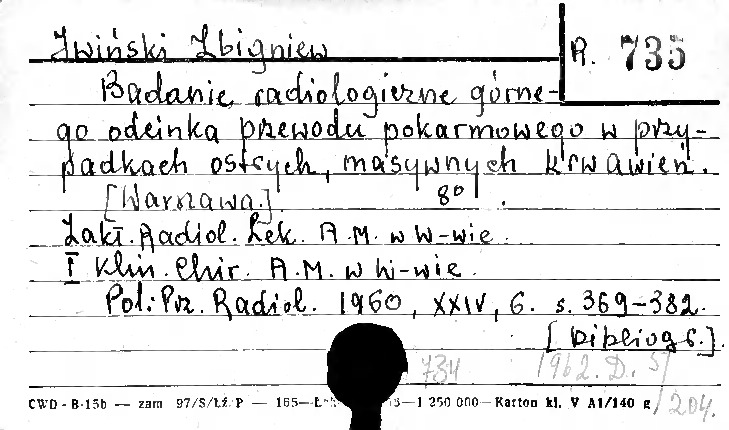 Iwiński Zbigniew
R. 735
Badanie radiologiczne górne-
go odcinka przewodu pokarmowego w przy-
padkach ostrych, masywnych krwawień.
[Warszawa.] 8º.
Zakł. Radiol. Lek. A.M. w W-wie.
I Klin. Chir. A.M. w W-wie.
Pol. Prz. Radiol. 1960, XXIV, 6. s. 369-382.
[Bibliogr.].
734 1962. D. 57/204.
CWD - B-15b — zam 97/S/Łź P — 165— 1 250 000— Karton kl. V A1/140 g